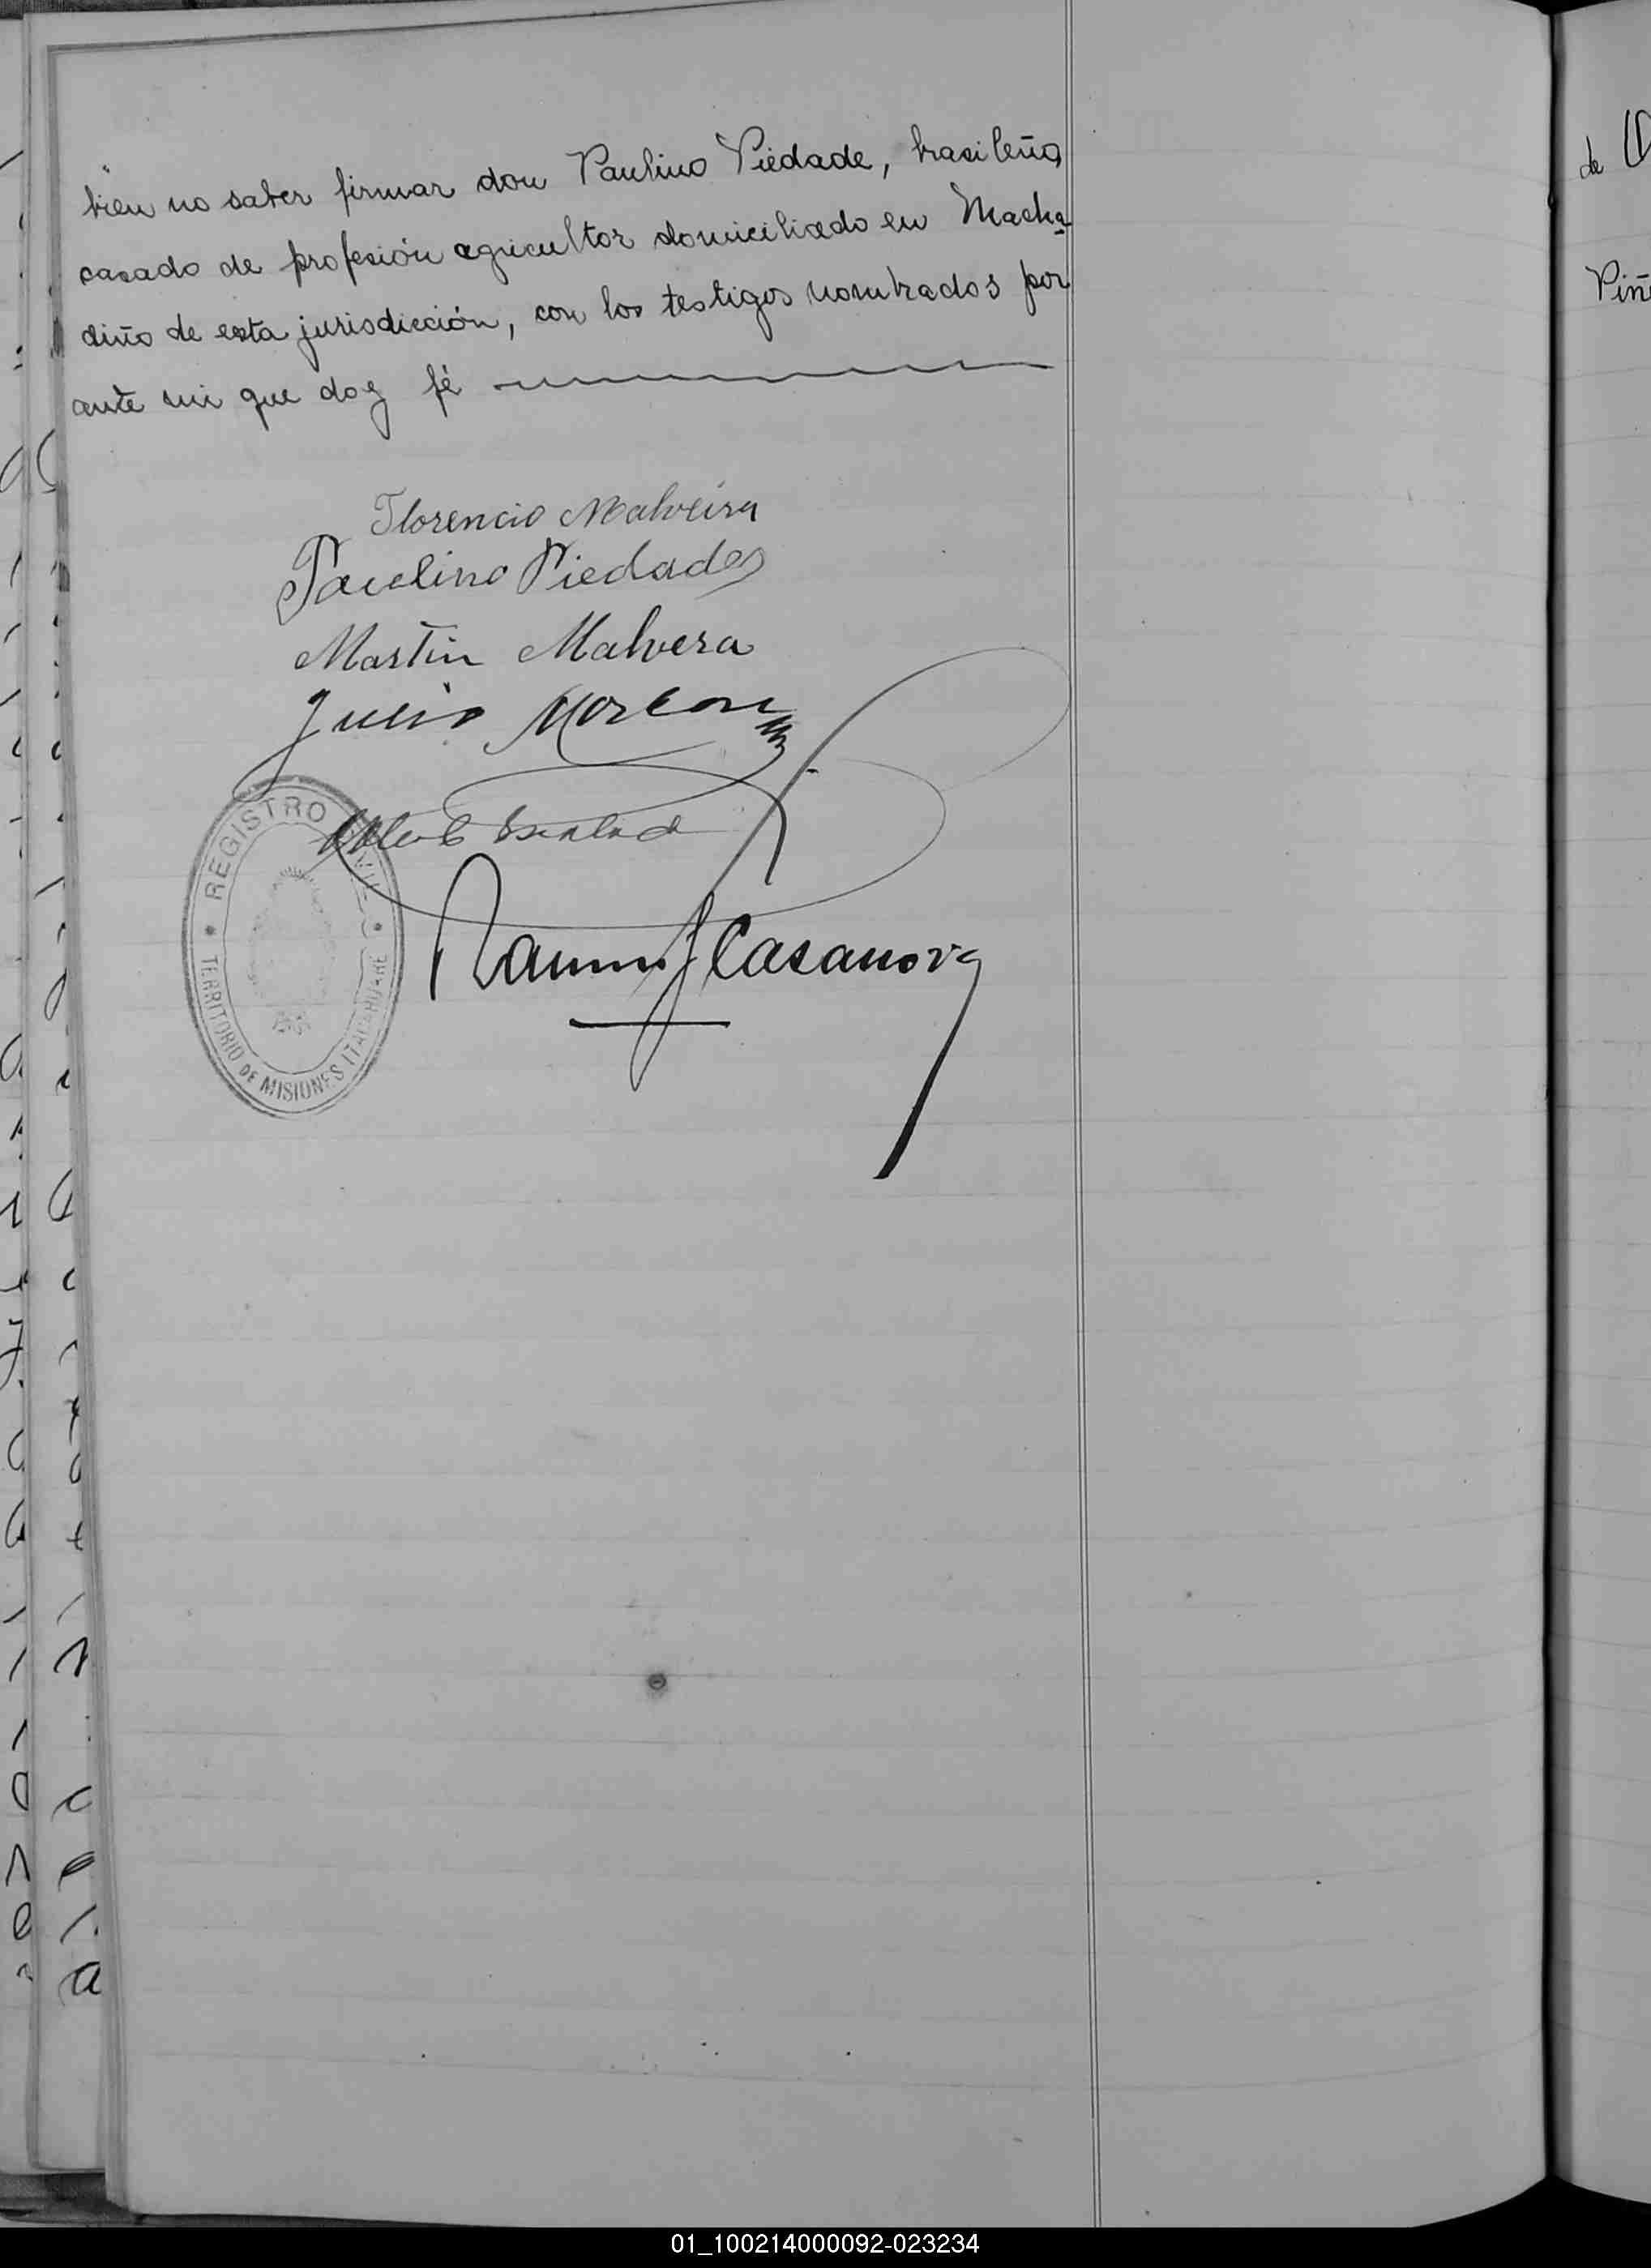 bien no saber firmar don Paulino Piedade, brasileño
casado de profesión agricultor domiciliado en Macha
diño de esta jurisdicción, con los testigos nombrados por
ante mi que doy fé
Florencio Malveira
Paulino Piedade
Martin Malvera
Julio
REGISTRO CIVIL
TERRITORIO DE MISIONES ITACARUARE
Ramon J Casanova
de
Piñ
01_100214000092-023234